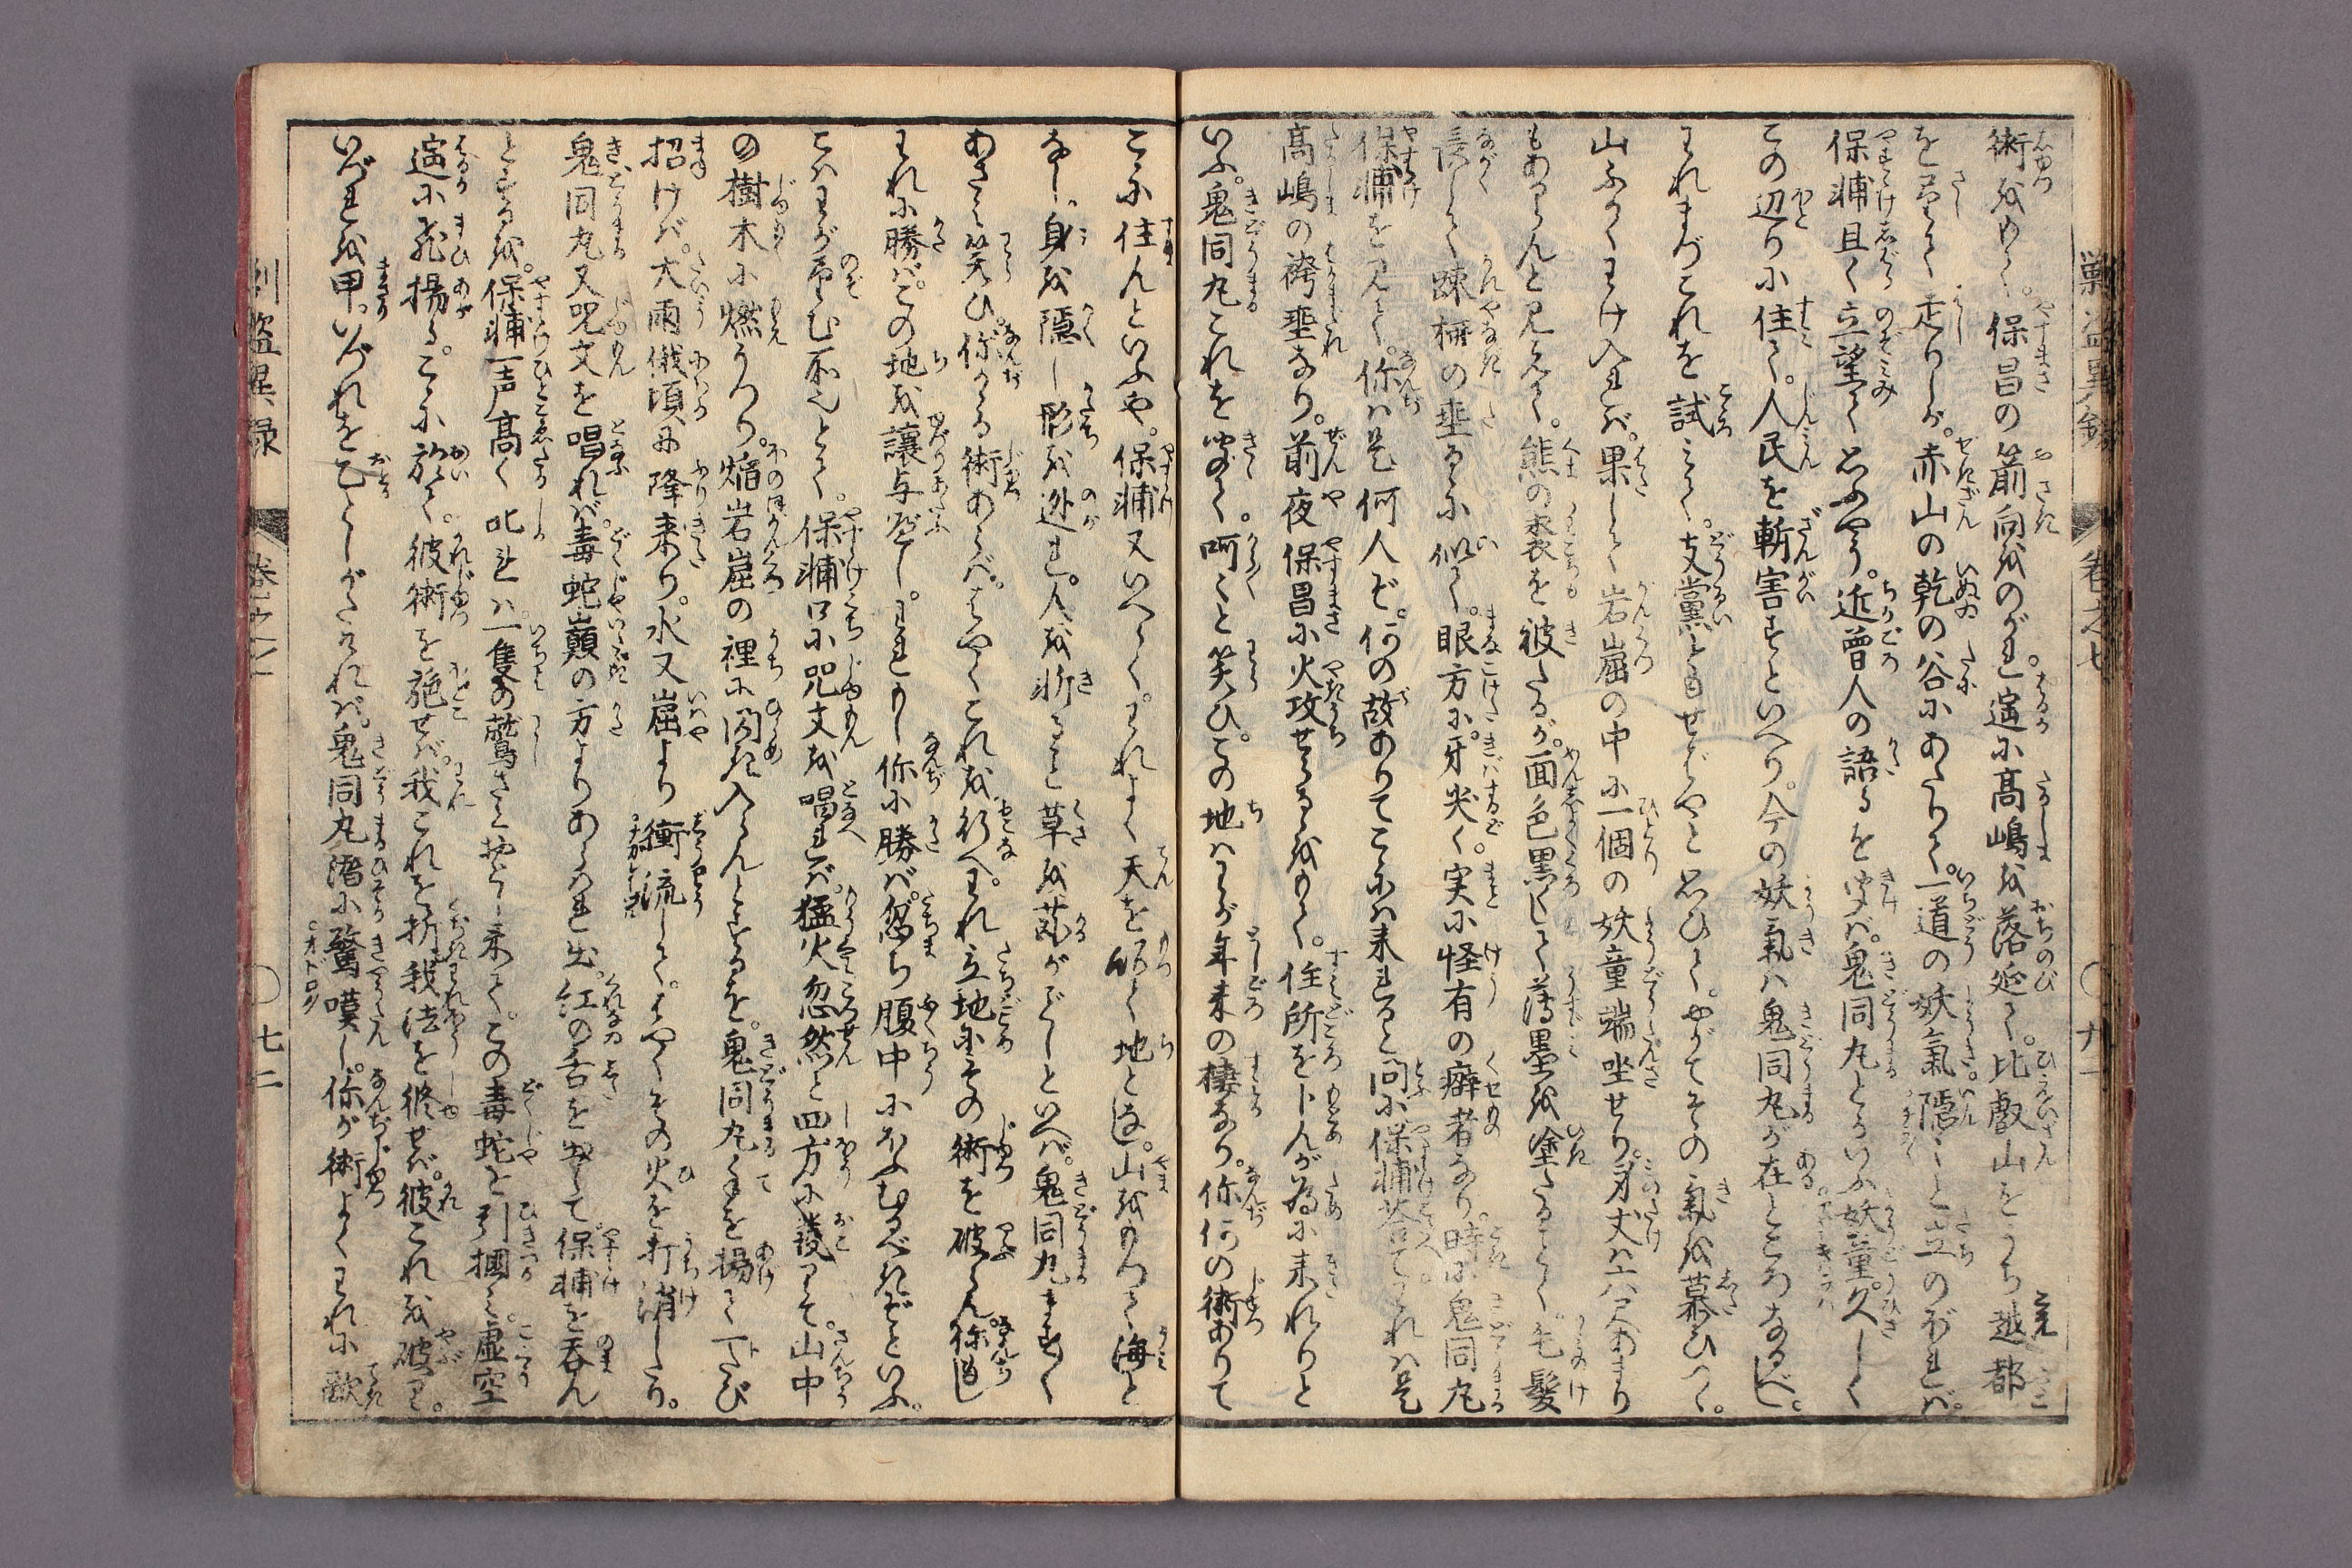 術をもて。保昌の箭向をのがれ。遥に高嶋を落延て。比叡山をうち越都
を�さして走りしが。赤山の乾の谷にあたりて。一道の妖氣隠〻と立のぼれば。
保輔且く立望て思ふやう。近曽人の語るを聞けば。鬼同丸とかいふ妖童。久しく
この辺りに住て。人民を斬害すといへり。今の妖氣は鬼同丸が在ところなるべし。
われまづこれを試みて。支黨ともせばやと思ひて。やがてその氣を慕ひつゝ。
山ふかくわけ入れば。果して岩崛の中に一個の妖童端坐せり。身丈は六尺あまり
もあらんと見えて。熊の裘を被たるが。面色黒くして薄墨を塗たるごとく。毛髪
長して踈柵の垂るに似て。眼方に。牙尖く。実に怪有の癖者なり。時に鬼同丸
保輔を見て。你は是何人ぞ。何の故ありてこゝには来れると問に。保輔荅て。われは是
高嶋の袴垂なり。前夜保昌に火攻せらるをもて。住所を卜んが為に来れりと
いふ。鬼同丸これを聞て。呵〻と笑ひ。この地はわが年来の棲なり。你何の術ありて
こゝに住んといふや。保輔又いへらく。われよく天を縮て地となし。山をもつて海と
なし。身を隠し形を遁れ。人を斬ること草を苅がごとしといへば。鬼同丸ますく
あざみ笑ひ。你かゝる術あらば。はやくこれを行へ。われ立地にその術を破らん。你もし
われに勝ば。この地を譲与べし。われもし你に勝ば。忽ち腹中にほふむるべきぞといふ。
こはわが望む所也とて。保輔口に咒文を唱れば。猛火忽然と四方に發りて。山中
の樹木に燃うつり。焔岩崛の裡に閃き入らんとするを。鬼同丸手を揚て一トたび
招けば。大雨俄頃に降来り。水又崛より衝流して。はやくその火を打消したり。
鬼同丸又咒文を唱れば。毒蛇巓の方よりあらはれ出。紅の舌を出して保輔を呑ん
とするを。保輔一声高く叱れば。一隻の鷲さと落し来て。この毒蛇を引摑み。虚空
遥に飛揚る。こゝに於て。彼術を施せば。我これを折き。我法を修せば。彼これを破り。
いづれを甲。いづれを乙としがたければ。鬼同丸潜に驚嘆し。你が術よくわれに敵
卷之七
七二